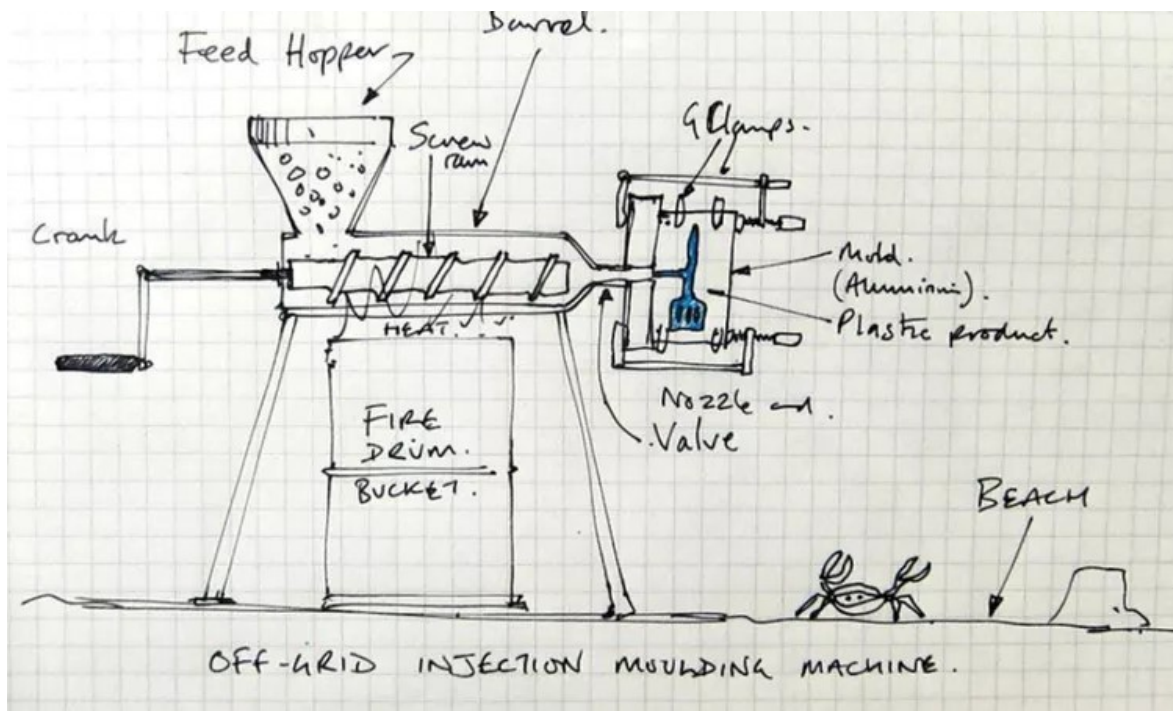 Barrel.
Feed Hopper
Screw
ram
G Clamps.
Crank
Mold.
(Aluminium).
Plastic product.
HEAT.
Nozzle and.
Valve
FIRE
DRUM.
BUCKET.
BEACH
OFF-GRID INJECTION MOULDING MACHINE.